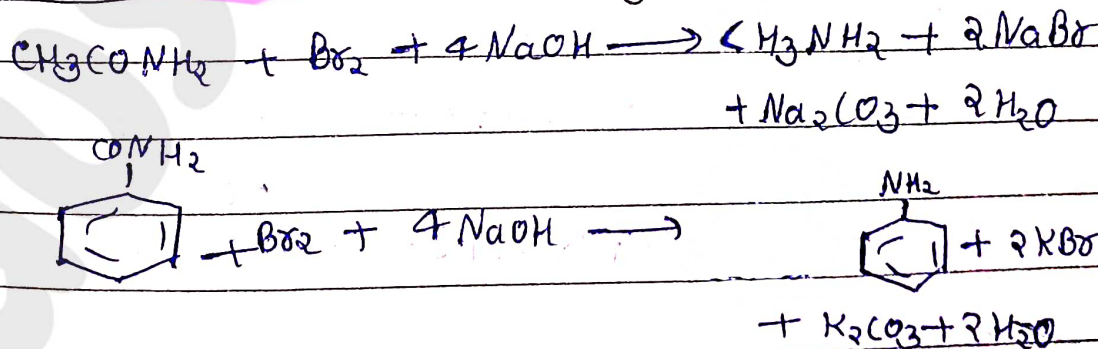 CH3CONH2 + Br2 + 4 NaOH → CH3NH2 + 2NaBr
+ Na2CO3 + 2H2O
CONH2
NH2
+ Br2 + 4 NaOH → + 2KBr
+ K2CO3 + 2H2O